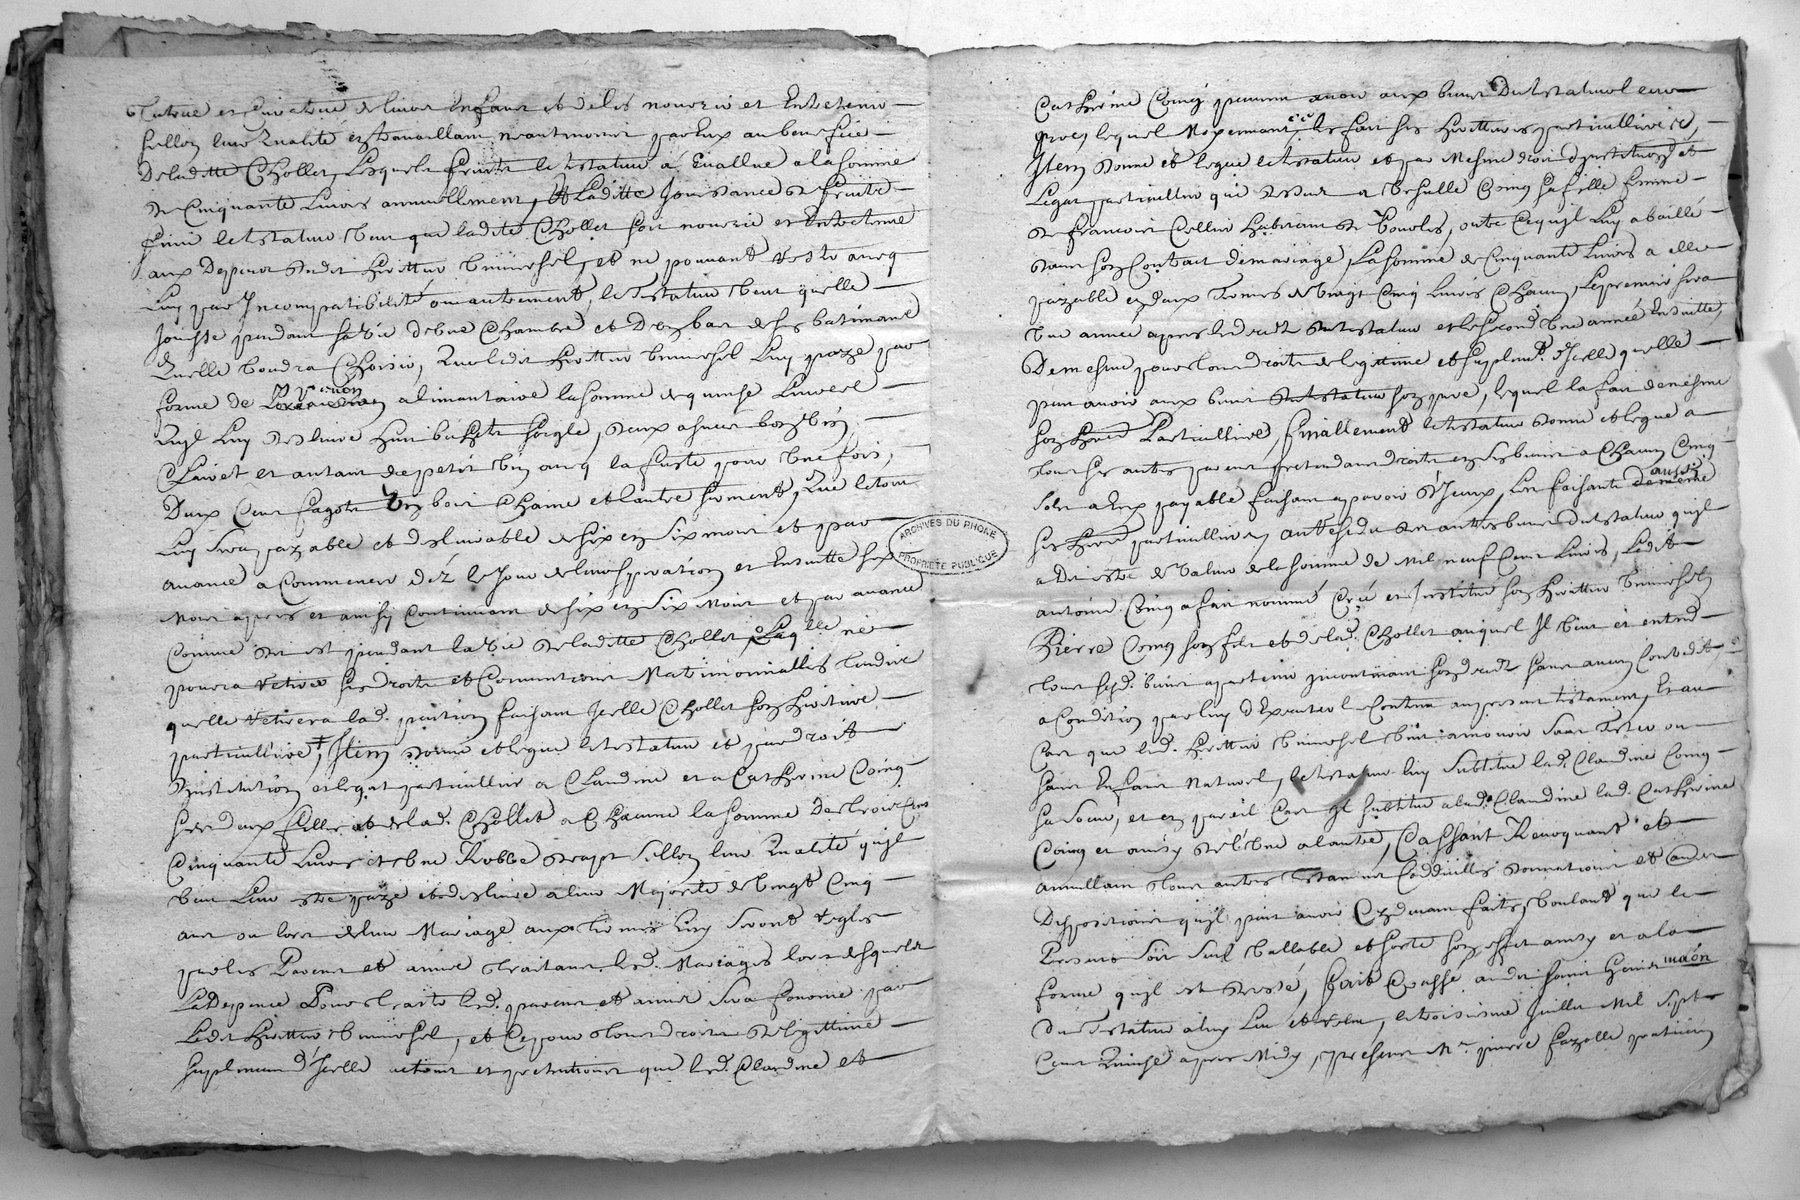 tutrice et curatrice de leurs enfans et de les nourrir et entretenir
sellon leur qualité en travaillant neantmoins par eux au benefice
de laditte Chollet, lesquels fruits le testateur a evallue a la somme
de cinquante livres annuellement, laditte jouissance de fruits
finie le testateur veut que ladite Chollet soit nourrie et entretenue
aux depens dudit heritier universel, et ne pouvant vestir avecq
luy par incompatibilité ou autrement, le testateur veut quelle
jouisse pendant sa vie d'une chambre et d'un bas de ses batimans
quelle voudra choisir, que ledit heritier universel luy paye par
forme de pention alimantaire la somme de quinse livres
quil luy deslivre huit bichets seigle, deux asnées bon vin
clairet et autant de petit vin avecq la fuste pour une fois,
deux cent fagots un bois chaine et lautre serment, que le tout
luy sera payable et deslivrable de six en six mois et par
avance a commencer déz le jour de leur separation et ensuitte six
mois apres et ainsy continuant de six en six mois et par avance
comme dit est pendant la vie de laditte Chollet, laqlle ne
poura retirer ses droits et conventions matrimonialles tandis
quelle retirera lad. pention faisant icelle Chollet son heritiere
particulliere, Item donne et legue le testateur et par droit
dinstitution et legat particullier a Claudine et a Catherine Coing
ses deux filles et de lad. Chollet a chacune la somme de trois cens
cinquante livres et une robbe de drapt sellon leur qualité quil
veut leur estre payé et deslivré a leur majorité de vingt cinq
ans ou lors de leur mariage aux termes quy seront regles
par les parens et amis traitans lesd. mariages lors desquels
la depence pour traiter lesd. parens et amis sera fournie par
ledit heritier universel, et ce pour tous droits de legittime
suplement d'icelle actions et pretentions que lesd. Claudine et
Catherine Coing peuvent avoir aux biens du testateur leur
pere, lequel moyennant ce les fait ses heritieres particullieres,
Item donne et legue le testateur et par mesme droit dinstitution et
legat particullier que dessus a Ursulle Coing sa fille femme
de Francois Cellier habitant de Vourles, outre ce quil luy a baillé
dans son contract de mariage, la somme de cinquante livres a elle
payable en deux termes de vingt cinq livres chacun, le premier sera
une année apres le deceds du testateur et le second une année ensuitte,
de mesme pour tous droits de legittime et suplemt. d'icelle quelle
peut avoir aux biens du testateur son pere, lequel la fait de mesme
son heritiere particulliere, finallement le testateur donne et legue a
tous ses autres parens pretendans droits en ses biens a chacun cinq
sols a eux payable faisant aparoir d'iceux, les faisants aussy
ses heritiers particulliers, au residu des autres biens du testateur quil
a dit estre de valeur de la somme de mil neuf cens livres, ledit
Antoine Coing a fait nommé créé et institué son heritier universel
Pierre Coing son fils et de lad. Chollet auquel il veut et entend
tous sesd. biens apartenir incontinant son deceds sans aucun contredit,
a condition par luy d'executer le contenu au present testament, et au
cas que led. heritier universel vint a mourir sans tester ou
sans enfans naturel, le testateur luy substitue lad. Claudine Coing
sa soeur, et en pareil cas il substitue a lad. Claudine lad. Catherine
Coing et ainsy de l'une a l'autre, cassant revoquant et
annullant tous autres testamens codicilles donnations et autres
dispositions quil peut avoir cy devant faits, voulant que le
present soit seul vallable et sorte son effet ainsy et a la
forme quil est dresté, fait et passé audit Saint Genis
du testateur a luy lu et relu, le troisieme juillet mil sept
cens quinse apres midy, presens Mr. pierre fazelle praticien
ARCHIVES DU RHONE
PROPRIETE PUBLIQUE